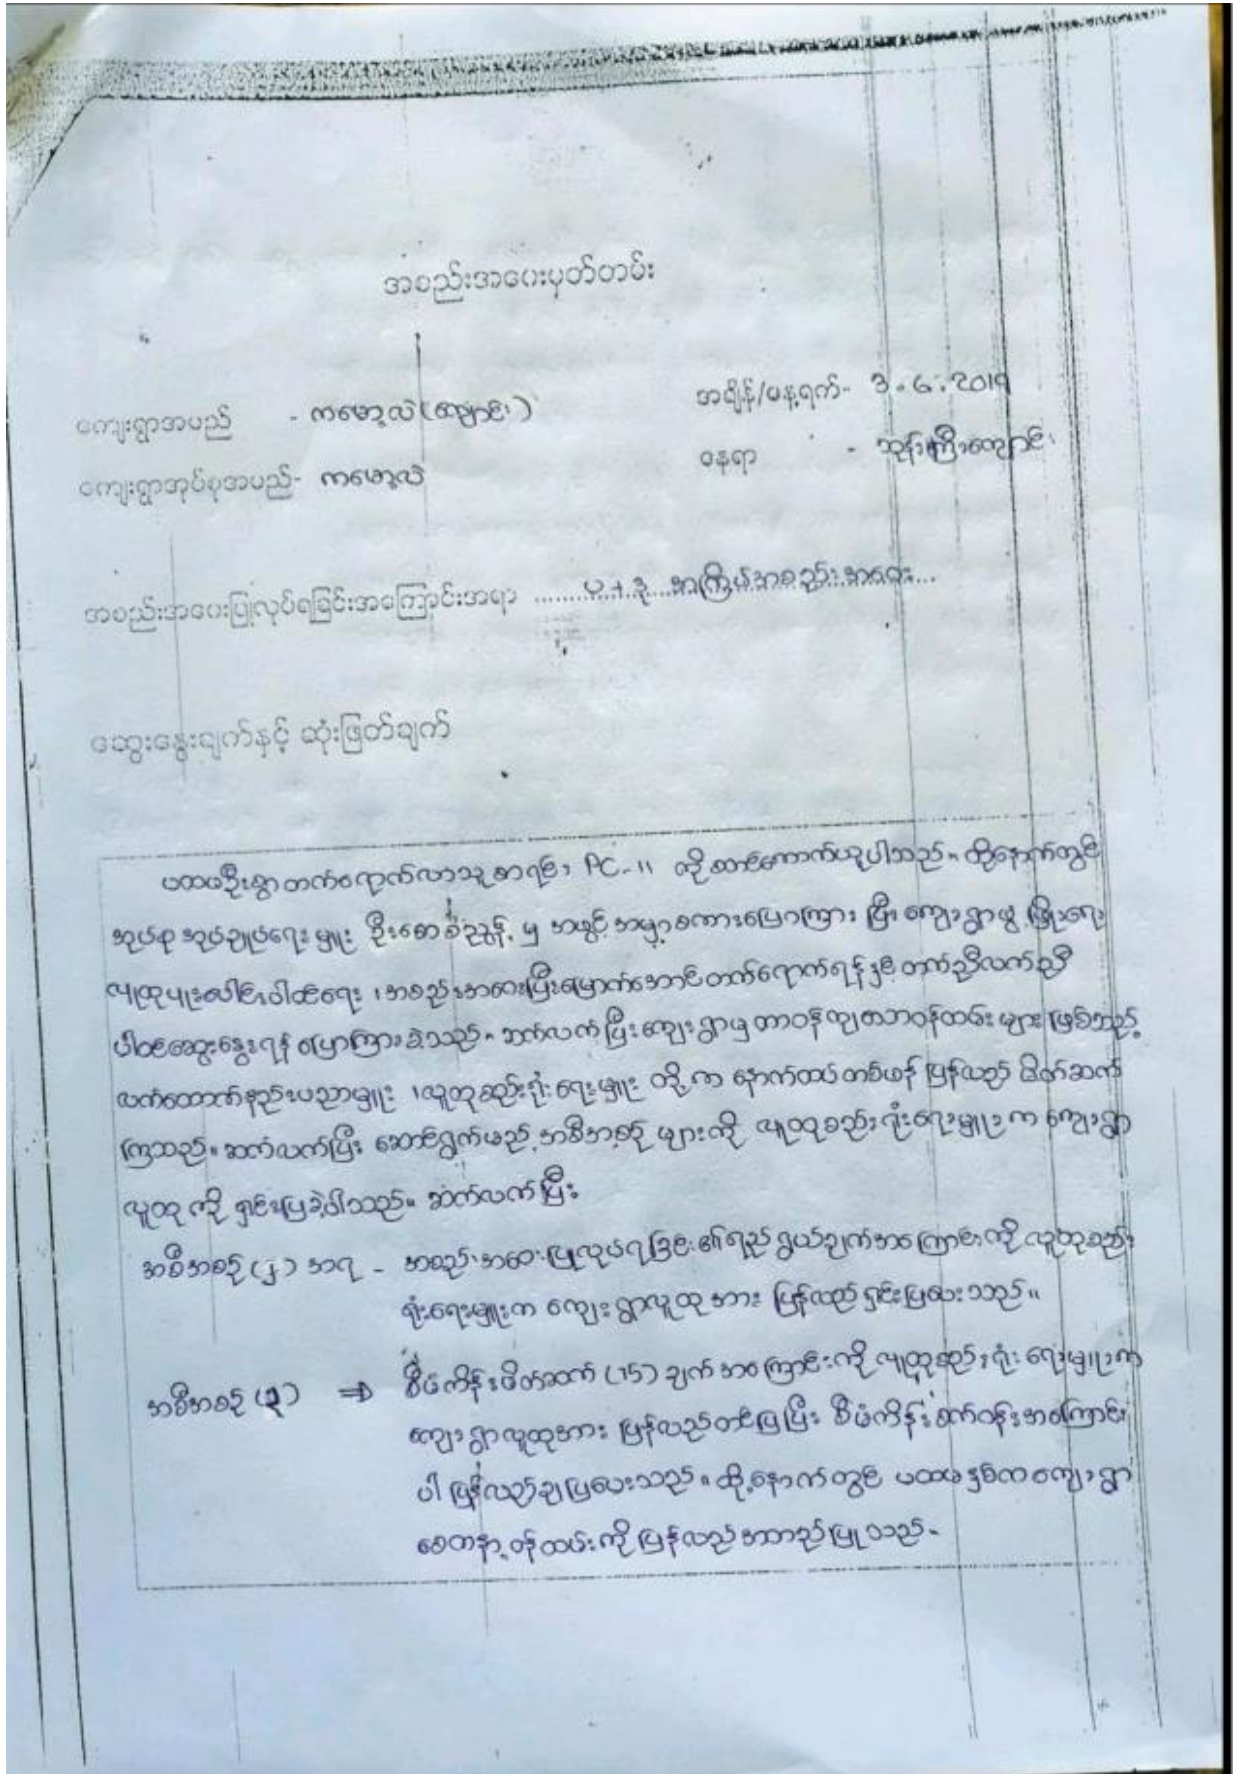 အစည်းအဝေးမှတ်တမ်း
ကျေးရွာအမည် - ကမော့လဲ (ကျောင်း)
အချိန်/နေ့ရက်- 3.6.2019
ကျေးရွာအုပ်စုအမည်- ကမော့လဲ
နေရာ - ဘုန်းကြီးကျောင်း
အစည်းအဝေးပြုလုပ်ရခြင်းအကြောင်းအရာ ..... ပ + ဒု အကြိမ်အစည်းအဝေး...
ဆွေးနွေးချက်နှင့် ဆုံးဖြတ်ချက်
ပထမဦးစွာ တက်ရောက်လာသူ စာရင်း PC-11 ကို ကောက်ယူပါသည်။ ထို့နောက်တွင်
အုပ်စု အုပ်ချုပ်ရေးမှူး ဦးစောစံညွန့် မှ အဖွင့် အမှာစကားပြောကြား ပြီး ကျေးရွာဖွံ့ဖြိုးရေး
လူထုပူးပေါင်းပါဝင်ရေး ၊ အစည်းအဝေးပြီးမြောက်အောင် တက်ရောက်ရန်နှင့် တက်ညီလက်ညီ
ပါဝင်ဆွေးနွေးရန် ပြောကြားခဲ့သည်။ ဆက်လက်ပြီး ကျေးရွာမှ တာဝန်ကျ ဝန်ထမ်းများ ဖြစ်သည့်
လက်ထောက်နည်းပညာမှူး ၊ လူထုစည်းရုံးရေးမှူး တို့က နောက်ထပ် တစ်ဖန် ပြန်လည် မိတ်ဆက်
ကြသည်။ ဆက်လက်ပြီး ဆောင်ရွက်မည့် အစီအစဉ် များကို လူထုစည်းရုံးရေးမှူး က ကျေးရွာ
လူထု ကို ရှင်းပြခဲ့ပါသည်။ ဆက်လက်ပြီး
အစီအစဉ် (၂) အရ - အစည်းအဝေးပြုလုပ်ရခြင်း၏ ရည်ရွယ်ချက်အကြောင်းကို လူထုစည်း
ရုံးရေးမှူးက ကျေးရွာလူထုအား ပြန်လည်ရှင်းပြပေးသည်။
အစီအစဉ် (၃) ⇒ စီမံကိန်းမိတ်ဆက် (15) ချက် အကြောင်းကို လူထုစည်းရုံးရေးမှူးက
ကျေးရွာလူထုအား ပြန်လည်တင်ပြပြီး စီမံကိန်းစက်ဝန်းအကြောင်း
ပါ ပြန်လည်ချပြပေးသည်။ ထို့နောက်တွင် ပထမနှစ်က ကျေးရွာ
စေတနာ့ဝန်ထမ်းကို ပြန်လည်အတည်ပြုသည်။